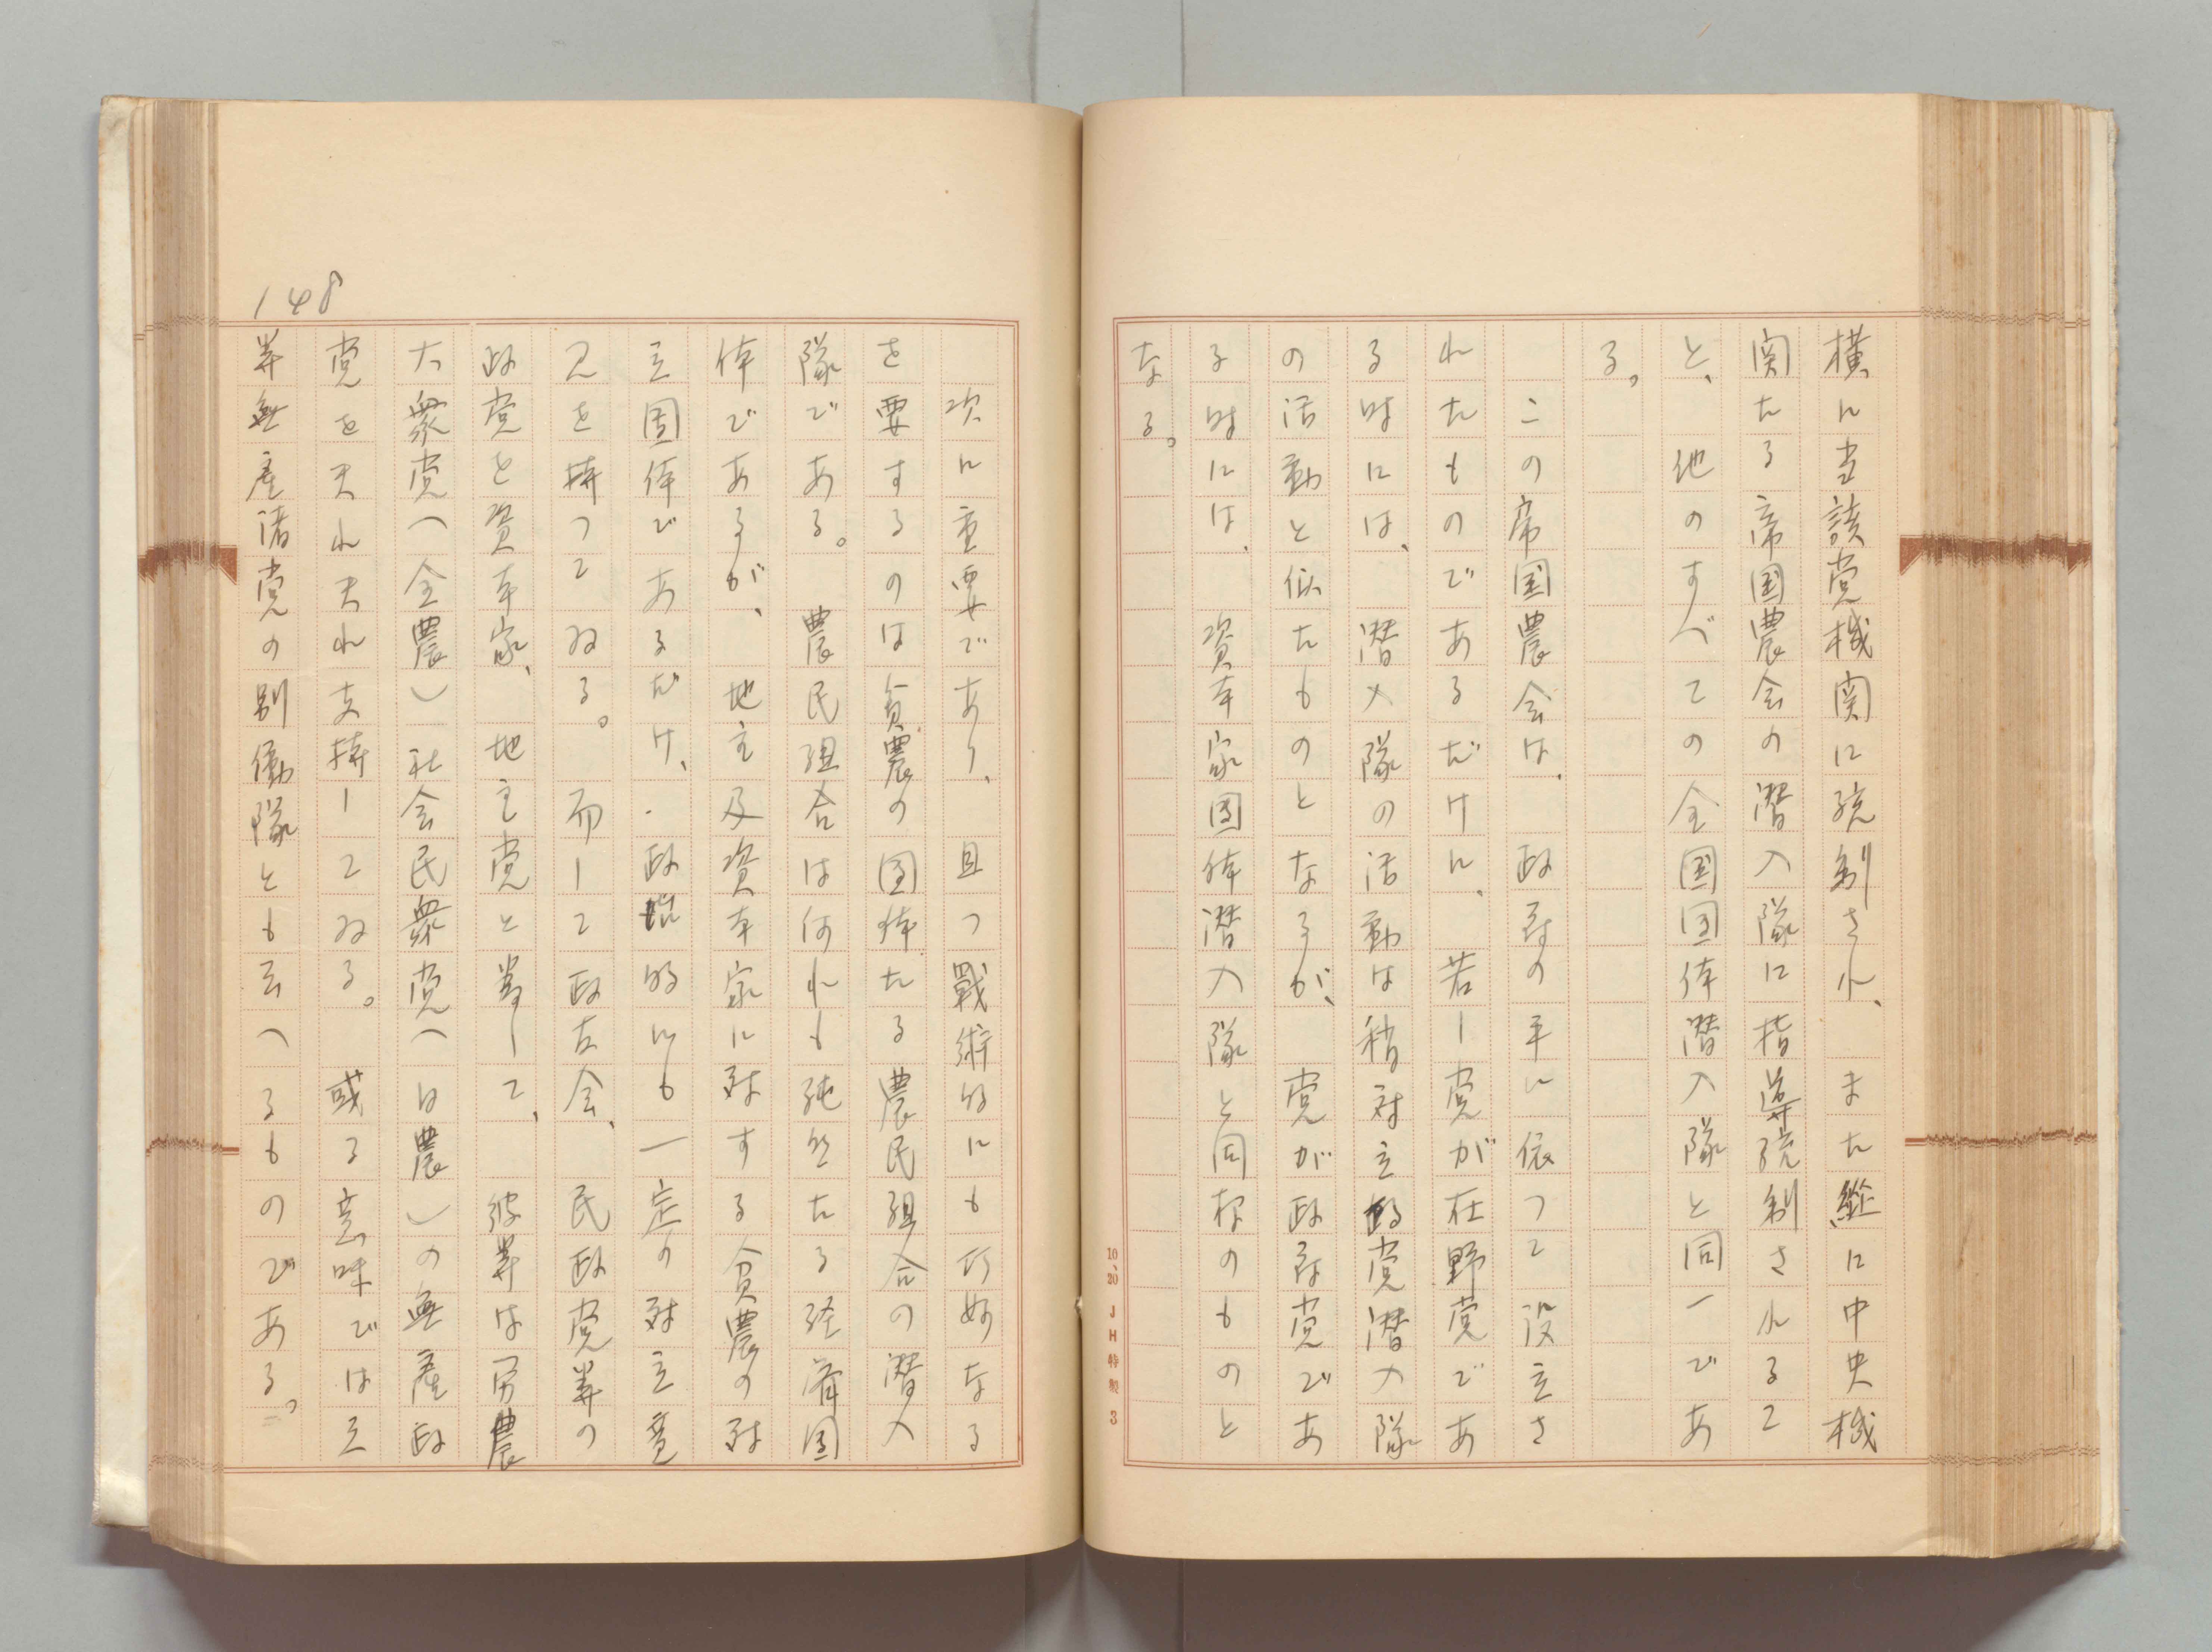 横に当該党機関に統制され、また縦に中央機
関たる帝国農会の潜入隊に指導統制されるこ
と、他のすべての全国団体潜入隊と同一であ
る。
この帝国農会は、政府の手に依って設立さ
れたものであるだけに、若し党が在野党であ
る時には、潜入隊の活動は稍対立政党潜入隊
の活動と似たものとなるが、党が政府党であ
る時には、資本家団体潜入隊と同様のものと
なる。
10.20 JH特製 3
次に重要であり、且つ戦術的にも巧妙なる
を要するのは貧農の団体たる農民組合の潜入
隊である。農民組合は何れも純然たる経済団
体であるが、地主及資本家に対する貧農の対
立団体であるだけ、政治的にも一定の対立意
見を持つてゐる。而して政友会、民政党等の
政党と資本家、地主党と営して、彼等は労農
大衆党（全農）社会民衆党（日農）の無産政
党を夫れ夫れ支持してゐる。或る意味では云
等無産諸党の別働隊とも云へるものである。
148